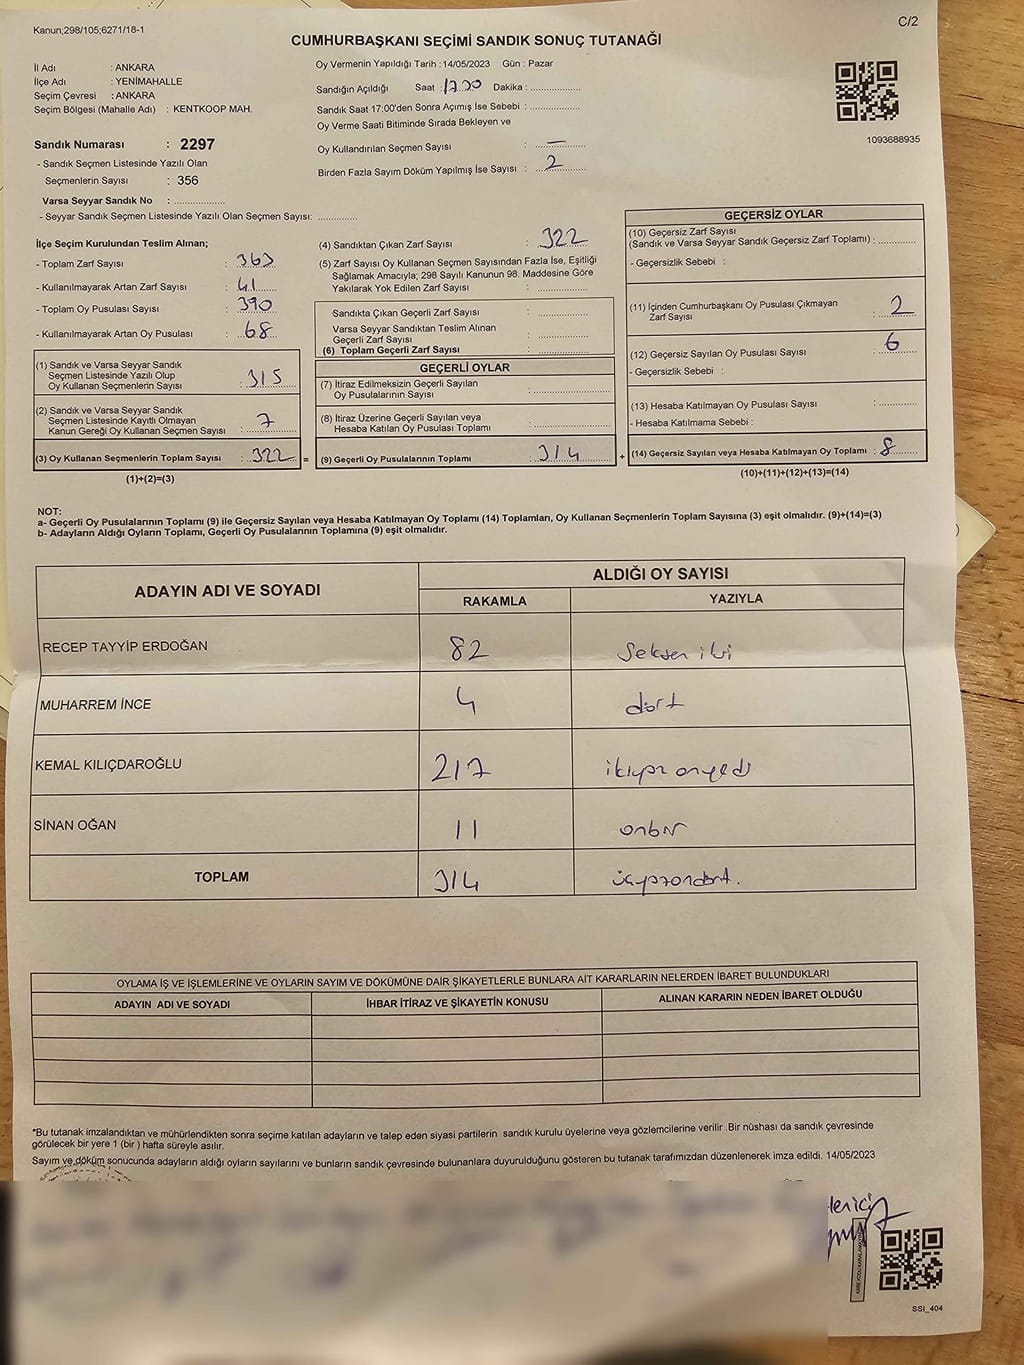 Kanun;298/105;6271/18-1
C/2
CUMHURBAŞKANI SEÇİMİ SANDIK SONUÇ TUTANAĞI
İl Adı : ANKARA
İlçe Adı : YENİMAHALLE
Seçim Çevresi : ANKARA
Seçim Bölgesi (Mahalle Adı) : KENTKOOP MAH.
Sandık Numarası : 2297
- Sandık Seçmen Listesinde Yazılı Olan
Seçmenlerin Sayısı : 356
Varsa Seyyar Sandık No : ....................
- Seyyar Sandık Seçmen Listesinde Yazılı Olan Seçmen Sayısı: ...............
Oy Vermenin Yapıldığı Tarih :14/05/2023 Gün : Pazar
Sandığın Açıldığı Saat : 17.00 Dakika : ....................
Sandık Saat 17:00'den Sonra Açımış İse Sebebi : ....................
Oy Verme Saati Bitiminde Sırada Bekleyen ve
Oy Kullandırılan Seçmen Sayısı : —
Birden Fazla Sayım Döküm Yapılmış İse Sayısı : 2
1093688935
İlçe Seçim Kurulundan Teslim Alınan;
- Toplam Zarf Sayısı : 363
- Kullanılmayarak Artan Zarf Sayısı : 41
- Toplam Oy Pusulası Sayısı : 390
- Kullanılmayarak Artan Oy Pusulası : 68
(1) Sandık ve Varsa Seyyar Sandık
Seçmen Listesinde Yazılı Olup
Oy Kullanan Seçmenlerin Sayısı : 315
(2) Sandık ve Varsa Seyyar Sandık
Seçmen Listesinde Kayıtlı Olmayan
Kanun Gereği Oy Kullanan Seçmen Sayısı : 7
(3) Oy Kullanan Seçmenlerin Toplam Sayısı : 322 =
(1)+(2)=(3)
(4) Sandıktan Çıkan Zarf Sayısı : 322
(5) Zarf Sayısı Oy Kullanan Seçmen Sayısından Fazla İse, Eşitliği
Sağlamak Amacıyla; 298 Sayılı Kanunun 98. Maddesine Göre
Yakılarak Yok Edilen Zarf Sayısı : ....................
Sandıkta Çıkan Geçerli Zarf Sayısı : ....................
Varsa Seyyar Sandıktan Teslim Alınan
Geçerli Zarf Sayısı : ....................
(6) Toplam Geçerli Zarf Sayısı : ....................
GEÇERLİ OYLAR
(7) İtiraz Edilmeksizin Geçerli Sayılan
Oy Pusulalarının Sayısı : ....................
(8) İtiraz Üzerine Geçerli Sayılan veya
Hesaba Katılan Oy Pusulası Toplamı : ....................
(9) Geçerli Oy Pusulalarının Toplamı : 314 +
GEÇERSİZ OYLAR
(10) Geçersiz Zarf Sayısı
(Sandık ve Varsa Seyyar Sandık Geçersiz Zarf Toplamı) : ...............
- Geçersizlik Sebebi :
(11) İçinden Cumhurbaşkanı Oy Pusulası Çıkmayan
Zarf Sayısı : 2
(12) Geçersiz Sayılan Oy Pusulası Sayısı : 6
- Geçersizlik Sebebi :
(13) Hesaba Katılmayan Oy Pusulası Sayısı : ...............
- Hesaba Katılmama Sebebi :
(14) Geçersiz Sayılan veya Hesaba Katılmayan Oy Toplamı : 8
(10)+(11)+(12)+(13)=(14)
NOT:
a- Geçerli Oy Pusulalarının Toplamı (9) ile Geçersiz Sayılan veya Hesaba Katılmayan Oy Toplamı (14) Toplamları, Oy Kullanan Seçmenlerin Toplam Sayısına (3) eşit olmalıdır. (9)+(14)=(3)
b- Adayların Aldığı Oyların Toplamı, Geçerli Oy Pusulalarının Toplamına (9) eşit olmalıdır.
ADAYIN ADI VE SOYADI
ALDIĞI OY SAYISI
RAKAMLA YAZIYLA
RECEP TAYYİP ERDOĞAN 82 Seksen iki
MUHARREM İNCE 4 dört
KEMAL KILIÇDAROĞLU 217 ikiyüz onyedi
SİNAN OĞAN 11 onbir
TOPLAM 314 üçyüzondört.
OYLAMA İŞ VE İŞLEMLERİNE VE OYLARIN SAYIM VE DÖKÜMÜNE DAİR ŞİKAYETLERLE BUNLARA AİT KARARLARIN NELERDEN İBARET BULUNDUKLARI
ADAYIN ADI VE SOYADI İHBAR İTİRAZ VE ŞİKAYETİN KONUSU ALINAN KARARIN NEDEN İBARET OLDUĞU
*Bu tutanak imzalandıktan ve mühürlendikten sonra seçime katılan adayların ve talep eden siyasi partilerin sandık kurulu üyelerine veya gözlemcilerine verilir .Bir nüshası da sandık çevresinde
görülecek bir yere 1 (bir ) hafta süreyle asılır.
Sayım ve döküm sonucunda adayların aldığı oyların sayılarını ve bunların sandık çevresinde bulunanlara duyurulduğunu gösteren bu tutanak tarafımızdan düzenlenerek imza edildi. 14/05/2023
SSI_404